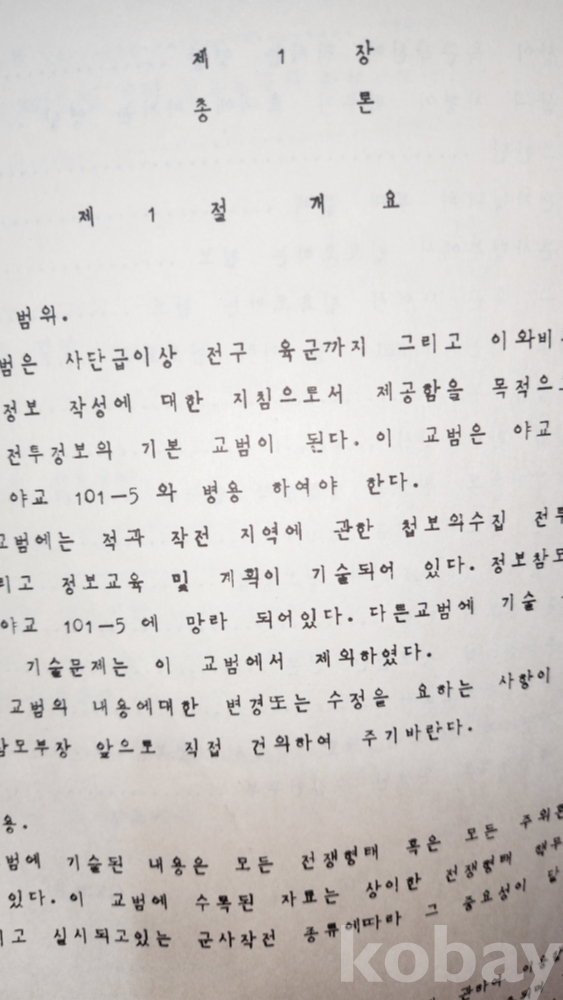 제 1 장
총 론
제 1 절 개 요
범위.
범은 사단급이상 전구 육군까지 그리고 이와비
정보 작성에 대한 지침으로서 제공함을 목적으
전투정보의 기본 교범이 된다. 이 교범은 야교
야교 101-5 와 병용 하여야 한다.
교범에는 적과 작전 지역에 관한 첩보의수집 전투
리고 정보교육 및 계획이 기술되어 있다. 정보참모
야교 101-5 에 망라 되어있다. 다른교범에 기술
기술문제는 이 교범에서 제외하였다.
교범의 내용에대한 변경또는 수정을 요하는 사항이
참모부장 앞으로 직접 건의하여 주기바란다.
용.
범에 기술된 내용은 모든 전쟁형태 혹은 모든 주위
있다. 이 교범에 수록된 자료는 상이한 전쟁형태
고 실시되고있는 군사작전 종류에따라 그 중요성이
관하여
kobay